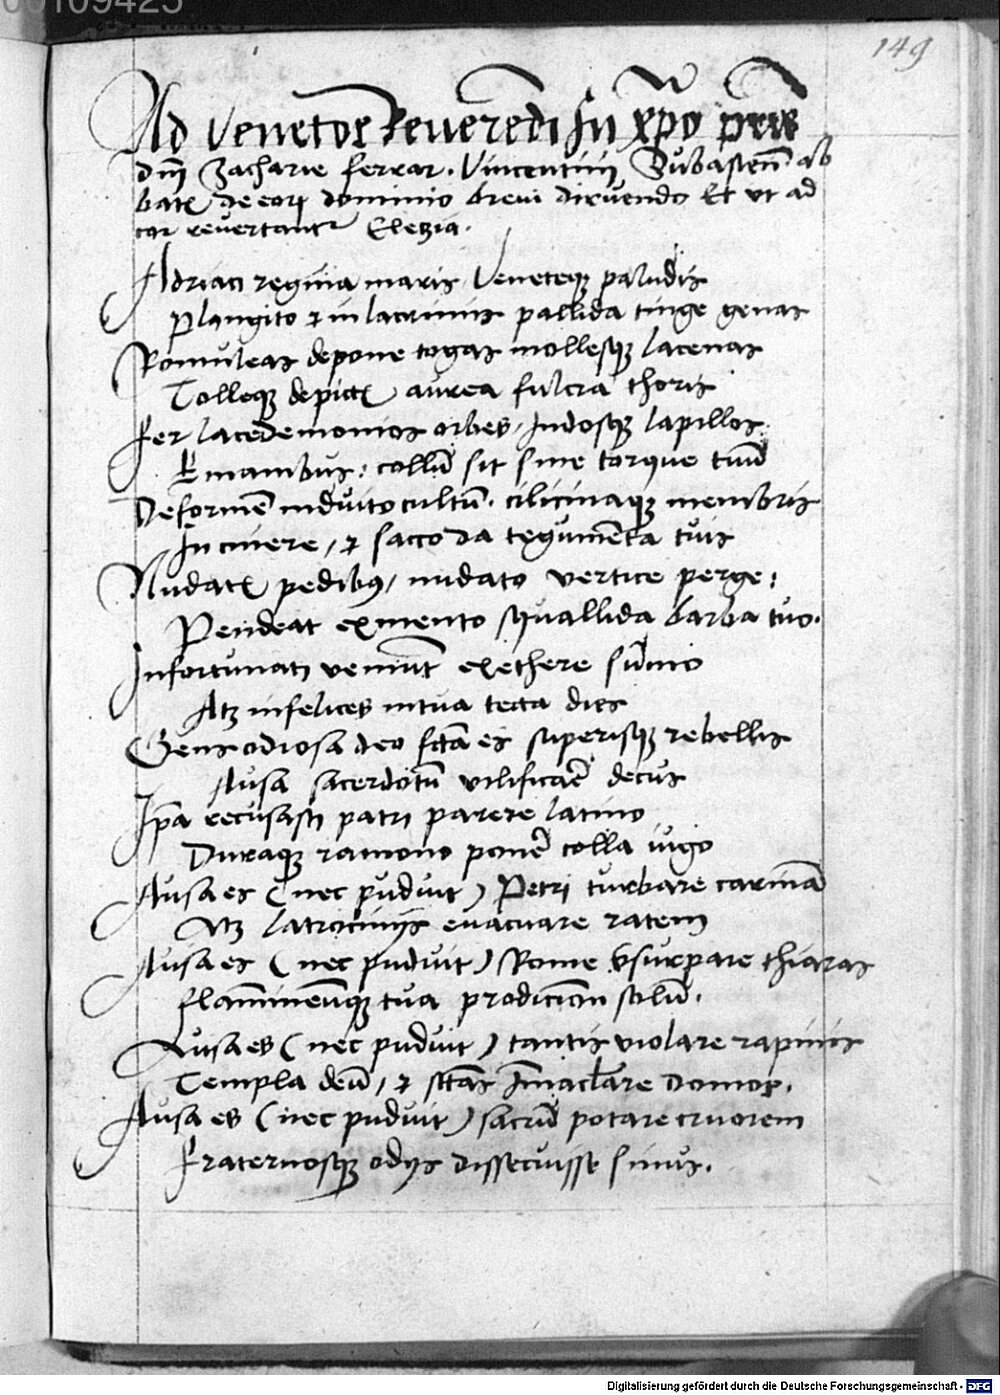 00109425
149
Ad Venetos Reverendi In xpo pr̄is
dn̄i Zacharie ferrar. Vincentini Subasien̄ ab
batis de eorum dominio brevi diruendo Et vt ad
cor revertantur Elegia.
Adriaci regina maris Veneteq; paludis
Plangito et in lacrimis pallida tinge genas
Romuleas depone togas mollesq; lacenas
Tolleq; depictis aurea fulcra thoris
Fer lacedemonios orbes, Indosq; lapillos
E manibus: collū sit sine torque tuū
Deformē induito cultū. cilicinaq; membris
In cinere, et sacco da tegumēta tuis
Nudatis pedibus, nudato vertice perge:
Pendeat ex mento squallida barba tuo.
Infortunati veniūt ex ethere sūmo
Atq; infelices in tua tecta dies
Gens odiosa deo fc̄ta es superisq; rebellis
Ausa sacerdotū vilificar̄e decus
Ip̄a recusasti patri parere latino
Duraq; romono poner̄e colla iugo
Ausa es (nec puduit) Petri turbare carinā
Atq; latrocinijs euacuare ratem
Ausa es (nec puduit) Rome vsurpare thiaras
Flam̄ineūq; tua prodicion̄ solū.
Ausa es (nec puduit) tantis violare rapinis
Templa deū, et sc̄tas Im̄aclare domos.
Ausa es (nec puduit) sacrū potare cruorem
Fraternosq; odijs dissecuisse sinus.
Digitalisierung gefördert durch die Deutsche Forschungsgemeinschaft - DFG